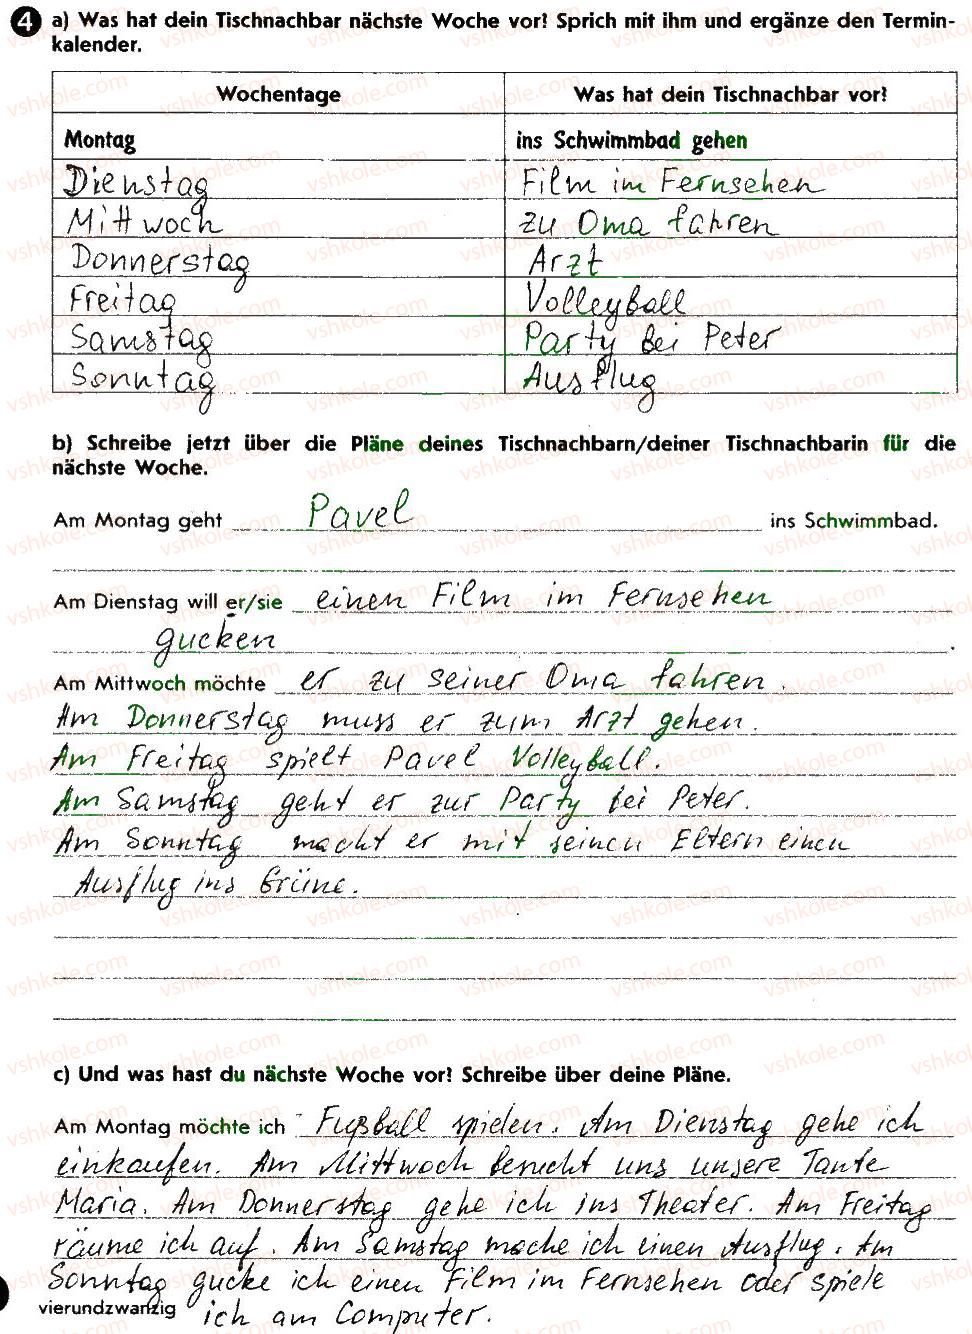 4 a) Was hat dein Tischnachbar nächste Woche vor? Sprich mit ihm und ergänze den Termin-
kalender.
Wochentage Was hat dein Tischnachbar vor?
Montag ins Schwimmbad gehen
Dienstag Film im Fernsehen
Mittwoch zu Oma fahren
Donnerstag Arzt
Freitag Volleyball
Samstag Party bei Peter
Sonntag Ausflug
b) Schreibe jetzt über die Pläne deines Tischnachbarn/deiner Tischnachbarin für die
nächste Woche.
Am Montag geht Pavel ins Schwimmbad.
Am Dienstag will er/sie einen Film im Fernsehen
gucken.
Am Mittwoch möchte er zu seiner Oma fahren.
Am Donnerstag muss er zum Arzt gehen.
Am Freitag spielt Pavel Volleyball.
Am Samstag geht er zur Party bei Peter.
Am Sonntag macht er mit seinen Eltern einen
Ausflug ins Grüne.
c) Und was hast du nächste Woche vor? Schreibe über deine Pläne.
Am Montag möchte ich Fußball spielen. Am Dienstag gehe ich
einkaufen. Am Mittwoch besucht uns unsere Tante
Maria. Am Donnerstag gehe ich ins Theater. Am Freitag
räume ich auf. Am Samstag mache ich einen Ausflug. Am
Sonntag gucke ich einen Film im Fernsehen oder spiele
vierundzwanzig ich am Computer.
vshkole.com